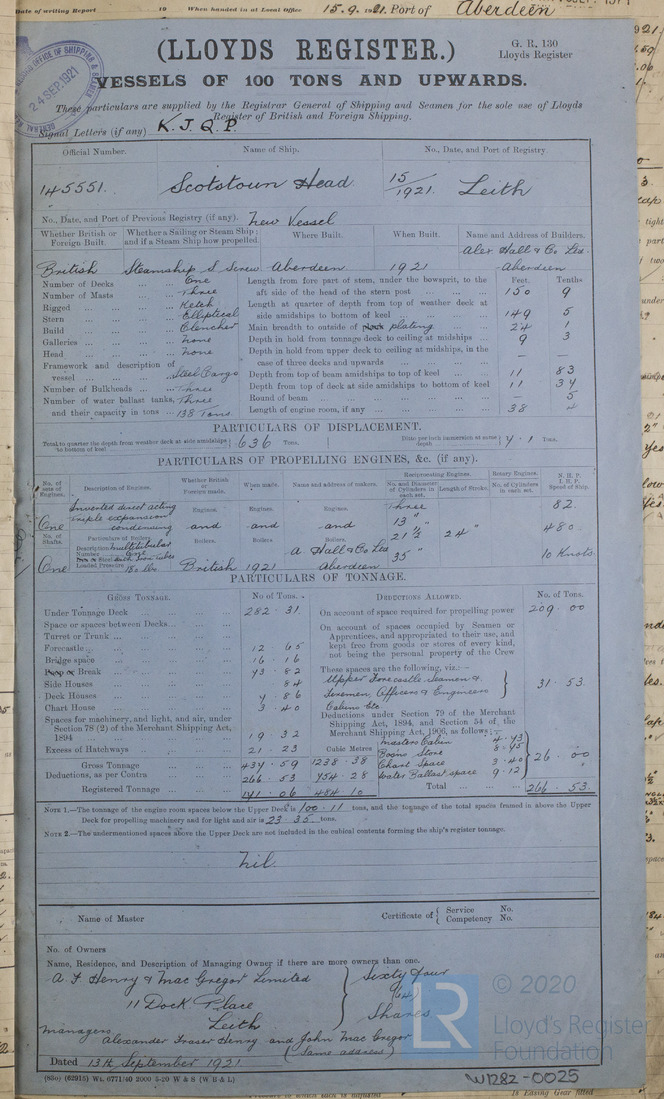 Date of writing Report 19 When handed in at Local Office 15.9.1921. Port of Aberdeen
(LLOYDS REGISTER.)
G. R. 130
Lloyds Register
VESSELS OF 100 TONS AND UPWARDS.
24 SEP. 1921
These particulars are supplied by the Registrar General of Shipping and Seamen for the sole use of Lloyds
Register of British and Foreign Shipping.
Signal Letters (if any) K. J. Q. P.
Official Number. Name of Ship. No., Date, and Port of Registry
145551. Scotstown Head 15/1921. Leith
No., Date, and Port of Previous Registry (if any). New Vessel
Whether British or Foreign Built. Whether a Sailing or Steam Ship; and if a Steam Ship how propelled. Where Built. When Built. Name and Address of Builders.
Alex Hall & Co Ltd.
British Steamship S Screw Aberdeen 1921 Aberdeen
Number of Decks ... One
Number of Masts ... Three
Rigged ... Ketch
Stern ... Elliptical
Build ... Clencher
Galleries ... None
Head ... None
Framework and description of
vessel ... Steel Cargo
Number of Bulkheads ... Three
Number of water ballast tanks, Three
and their capacity in tons ... 138 Tons.
Feet. Tenths
Length from fore part of stem, under the bowsprit, to the
aft side of the head of the stern post ... 150 9
Length at quarter of depth from top of weather deck at
side amidships to bottom of keel ... 149 5
Main breadth to outside of plank plating 24 1
Depth in hold from tonnage deck to ceiling at midships ... 9 3
Depth in hold from upper deck to ceiling at midships, in the
case of three decks and upwards — —
Depth from top of beam amidships to top of keel ... 11 83
Depth from top of deck at side amidships to bottom of keel 11 34
Round of beam ... — 5
Length of engine room, if any ... 38
PARTICULARS OF DISPLACEMENT.
Total to quarter the depth from weather deck at side amidships to bottom of keel 636 Tons. Ditto per inch immersion at same depth Tons.
PARTICULARS OF PROPELLING ENGINES, &c. (if any).
No. of sets of Engines. Description of Engines. Whether British or Foreign made. When made. Name and address of makers. Reciprocating Engines. Rotary Engines. N. H. P. I. H. P. Speed of Ship.
No. and Diameter of Cylinders in each set. Length of Stroke. No. of Cylinders in each set.
One Inverted direct acting triple expansion condensing Engines. Engines. Engines. Three 82
and and and 13" 24" 480
No. of Shafts. Particulars of Boilers. Boilers. Boilers. Boilers. 21½"
Description multitubular
Number One
Loaded Pressure 180 lbs
A. Hall & Co Ltd 35" 10 Knots
One British 1921 Aberdeen
PARTICULARS OF TONNAGE.
GROSS TONNAGE. No of Tons. DEDUCTIONS ALLOWED. No. of Tons.
Under Tonnage Deck ... 282.31
Space or spaces between Decks ...
Turret or Trunk ...
Forecastle ... 12 65
Bridge space ... 16.16
Poop or Break ... 73.82
Side Houses ... 84
Deck Houses ... 7.86
Chart House ... 3.40
Spaces for machinery, and light, and air, under
Section 78 (2) of the Merchant Shipping Act,
1894 ... 19 32
Excess of Hatchways ... 21.23
Gross Tonnage ... 437.59
Deductions, as per Contra 266.53
Registered Tonnage ... 171.06
Cubic Metres
1238.38
754.28
484.10
On account of space required for propelling power 209.00
On account of spaces occupied by Seamen or
Apprentices, and appropriated to their use, and
kept free from goods or stores of every kind,
not being the personal property of the Crew
These spaces are the following, viz.:—
Upper Forecastle, Seamen &
Firemen, Officers & Engineers 31.53
Cabins Etc
Deductions under Section 79 of the Merchant
Shipping Act, 1894, and Section 54 of the
Merchant Shipping Act, 1906, as follows:—
Masters Cabin 4.43
Boons Store
Chart Space 3.40
Water Ballast space 9.12
26.00
Total ... 266.53.
NOTE 1.—The tonnage of the engine room spaces below the Upper Deck is 100.11 tons, and the tonnage of the total spaces framed in above the Upper
Deck for propelling machinery and for light and air is 23.35 tons.
NOTE 2.—The undermentioned spaces above the Upper Deck are not included in the cubical contents forming the ship's register tonnage.
Nil.
Name of Master
Certificate of { Service No.
Competency No.
No. of Owners
Name, Residence, and Description of Managing Owner if there are more owners than one.
A. F. Henry & Mac Gregor Limited Sixty four
11 Dock Place (64)
Leith Shares
Managers Alexander Fraser Henry and John Mac Gregor
(Same address)
Dated 13th September 1921
(830) (62915) Wt. 6771/40 2000 5-20 W & S (W B & L)
LR © 2020
Lloyd's Register
Foundation
W1282-0025
Is Easing Gear fitted